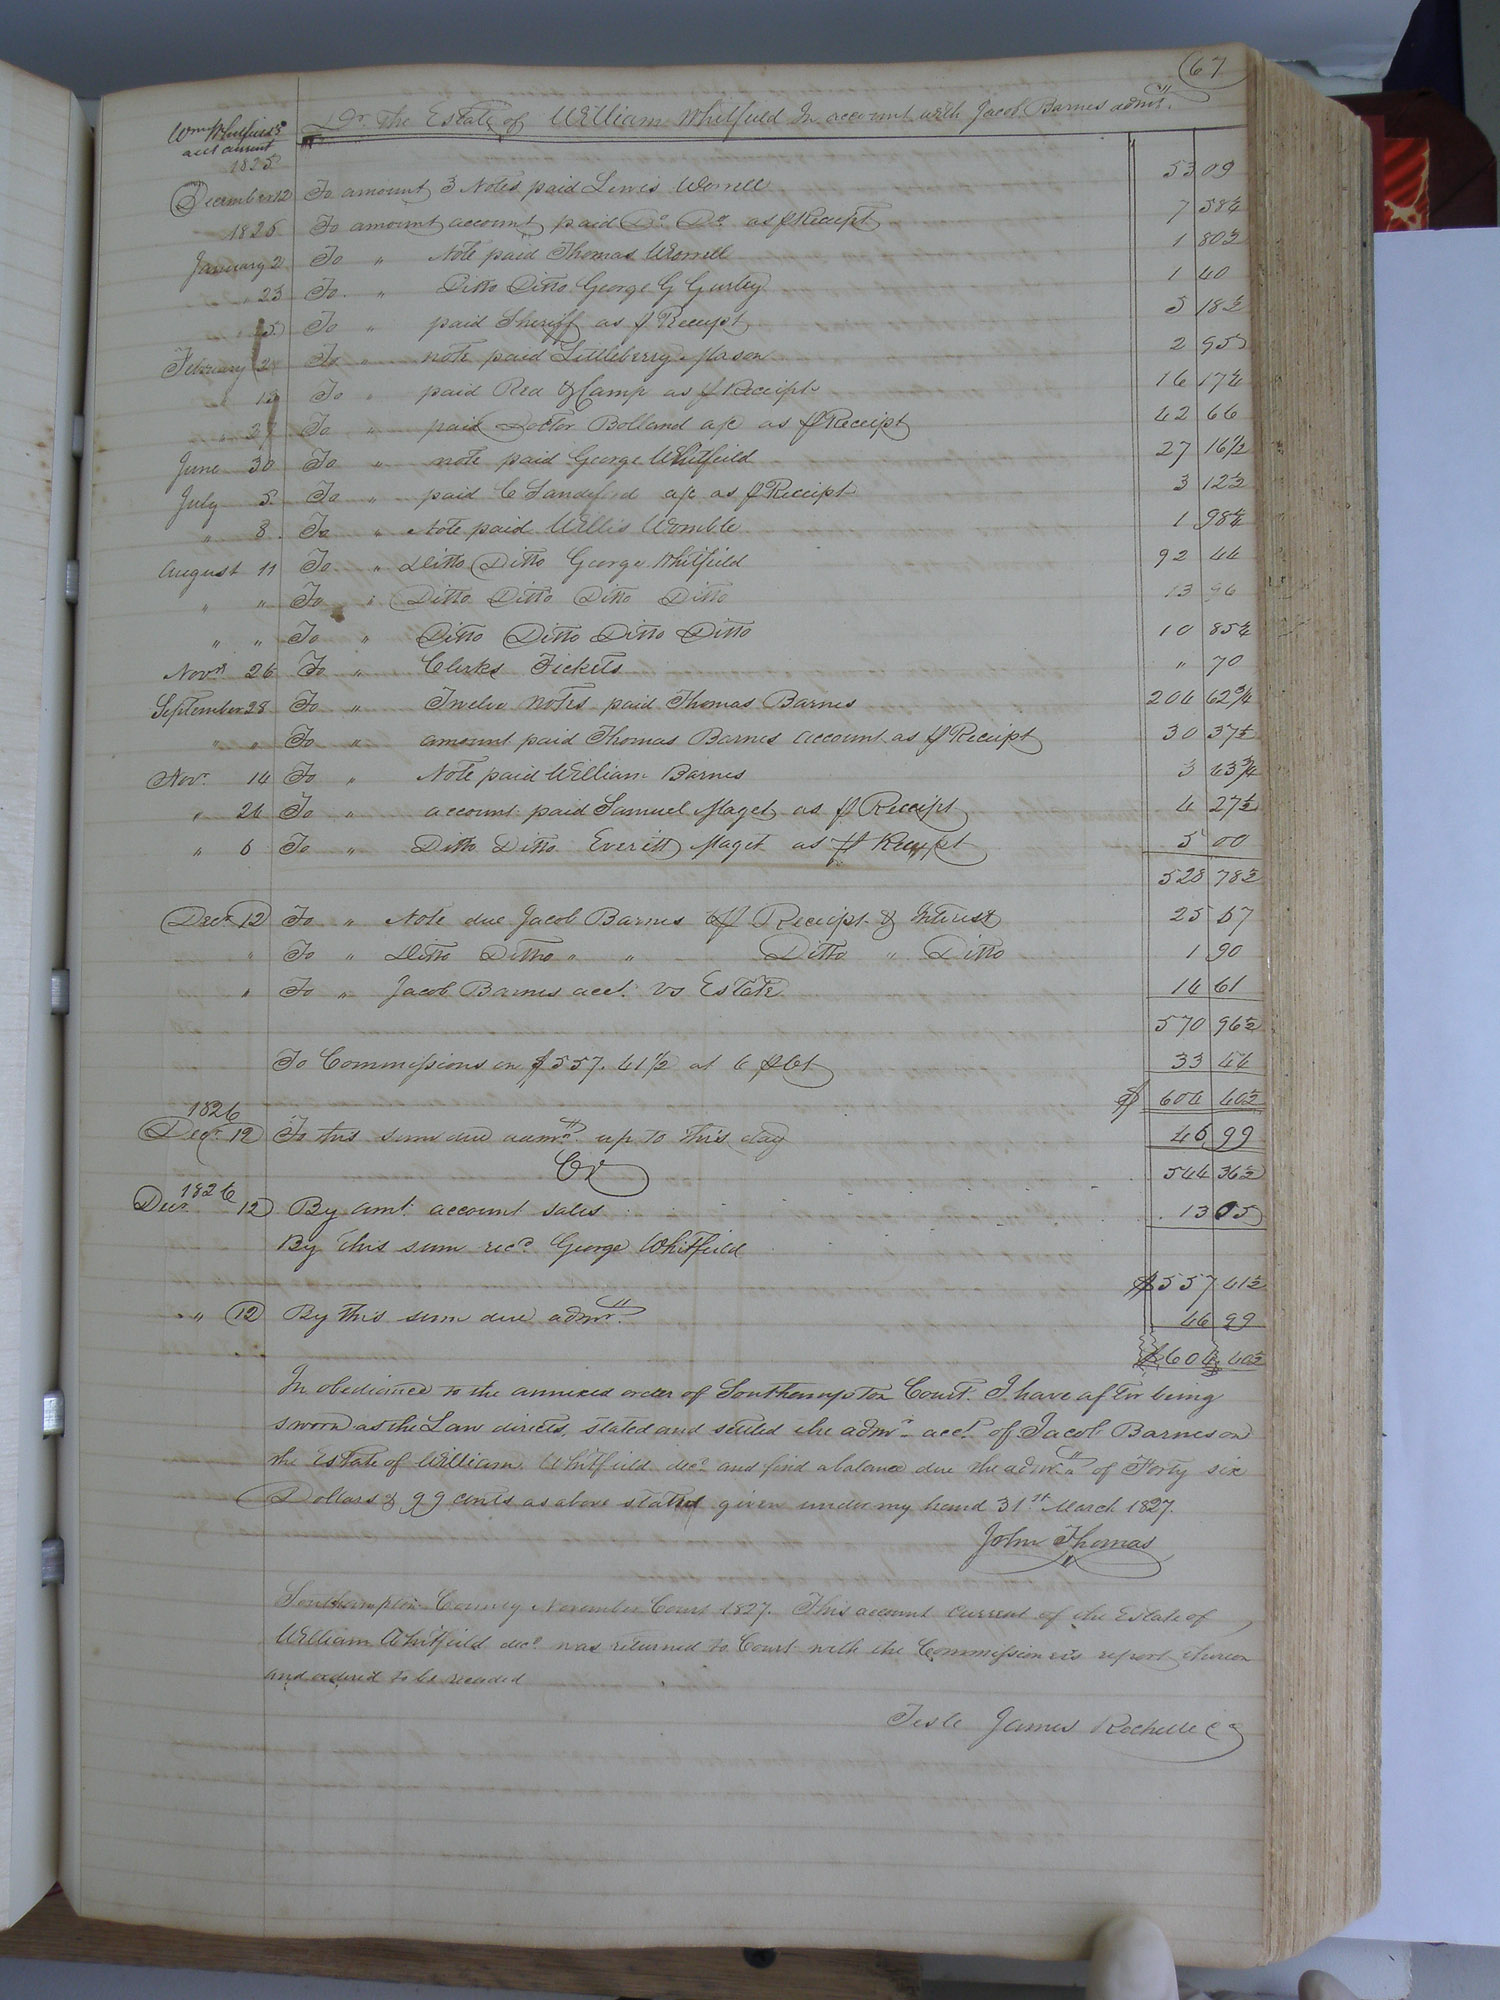 67
Wm Whitfield's
acct current
Dr. The Estate of William Whitfield In account with Jacob Barnes admr.
1825
December 12 To amount 3 Notes paid Lewis Worrell 53 09
1826 To amount account paid Do Do as ⅌ Receipt 7 58¼
January 2 To " Note paid Thomas Worrell 1 80½
" 23 To " Ditto Ditto George G Gurley 1 40
To " paid Sheriff as ⅌ Receipt 5 18½
February To " note paid Littleberry Mason 2 95
To " paid Rea & Camp as ⅌ Receipt 16 17¼
To " paid Doctor Bolland a/c as ⅌ Receipt 42 66
June 30 To " note paid George Whitfield 27 16½
July 5 To " paid C Landford a/c as ⅌ Receipt 3 12½
" 8 To " Note paid Willis Womble 1 98¼
August 11 To " Ditto Ditto George Whitfield 92 44
" " To " Ditto Ditto Ditto Ditto 13 96
" " To " Ditto Ditto Ditto Ditto 10 85¼
Novr 26 To " Clerks Tickets " 70
September 28 To " Twelve notes paid Thomas Barnes 204 62¾
" " To " amount paid Thomas Barnes account as ⅌ Receipt 30 37½
Novr. 14 To " Note paid William Barnes 3 43¾
" 26 To " account paid Samuel Maget as ⅌ Receipt 4 27½
" 6 To " Ditto Ditto Everitt Maget as ⅌ Receipt 5 00
528 78½
Decr 12 To " Note due Jacob Barnes ⅌ Receipt & Interest 25 67
" To " Ditto Ditto " " Ditto " Ditto 1 90
" To " Jacob Barnes acct. vs Estate 14 61
570 96½
To Commissions on $557.41½ at 6 ⅌ Ct 33 44
$ 604 40½
1826
Decr 12 To this sum due admr. up to this day 46 99
Cr 544 36½
1826
Decr 12 By amt. account sales 13 05
By this sum recd George Whitfield
$557 41½
" 12 By this sum due admr. 46 99
$604 40½
In obedience to the annexed order of Southampton Court I have after being
sworn as the Law directs, stated and settled the admrs acct. of Jacob Barnes on
the Estate of William Whitfield decd and find a balance due the admr. of Forty six
Dollars & 99 cents as above stated given under my hand 31st March 1827.
John Thomas
Southampton County November Court 1827. This account current of the Estate of
William Whitfield decd was returned to Court with the Commissioners report thereon
and ordered to be recorded
Teste James Rochelle